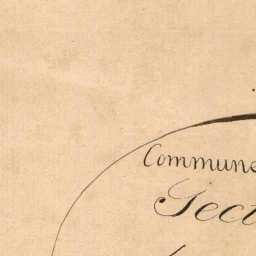 Commune
Sect